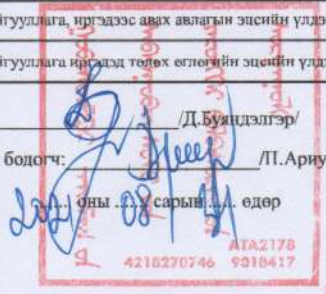 йгууллага, иргэдээс авах авлагын эцсийн үлдэ
йгууллага иргэдэд төлөх өглөгийн эцсийн үлд
/Д.Буяндэлгэр/
бодогч: /П.Ариу
2021 оны 08 сарын 31 өдөр
ATA2178
4218270746 9018417